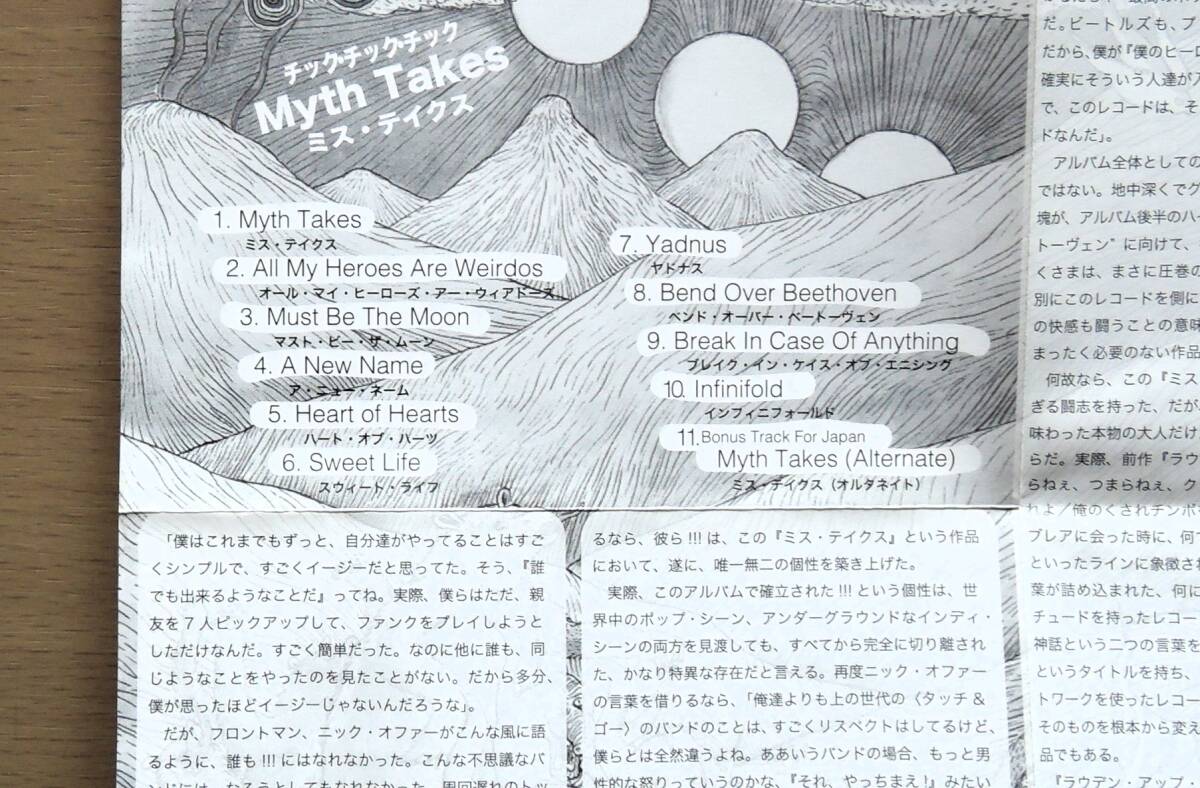 チック・チック・チック
Myth Takes
ミス・テイクス
1. Myth Takes
ミス・テイクス
2. All My Heroes Are Weirdos
オール・マイ・ヒーローズ・アー・ウィアドーズ
3. Must Be The Moon
マスト・ビー・ザ・ムーン
4. A New Name
ア・ニュー・ネーム
5. Heart of Hearts
ハート・オブ・ハーツ
6. Sweet Life
スウィート・ライフ
7. Yadnus
ヤドナス
8. Bend Over Beethoven
ベンド・オーバー・ベートーヴェン
9. Break In Case Of Anything
ブレイク・イン・ケイス・オブ・エニシング
10. Infinifold
インフィニフォールド
11. Bonus Track For Japan
Myth Takes (Alternate)
ミス・テイクス（オルタネイト）
「僕はこれまでもずっと、自分達がやってることはすご
くシンプルで、すごくイージーだと思ってた。そう、『誰
でも出来るようなことだ』ってね。実際、僕らはただ、親
友を7人ピックアップして、ファンクをプレイしようと
しただけなんだ。すごく簡単だった。なのに他に誰も、同
じようなことをやったのを見たことがない。だから多分、
僕が思ったほどイージーじゃないんだろうな」。
だが、フロントマン、ニック・オファーがこんな風に語
るように、誰も!!!にはなれなかった。こんな不思議なバ
ンドには、なろうとしてもなれなかった。周回遅れのトッ
るなら、彼ら!!!は、この『ミス・テイクス』という作品
において、遂に、唯一無二の個性を築き上げた。
実際、このアルバムで確立された!!!という個性は、世
界中のポップ・シーン、アンダーグラウンドなインディ・
シーンの両方を見渡しても、すべてから完全に切り離され
た、かなり特異な存在だと言える。再度ニック・オファー
の言葉を借りるなら、「俺達よりも上の世代の〈タッチ&
ゴー〉のバンドのことは、すごくリスペクトはしてるけど、
僕らとは全然違うよね。ああいうバンドの場合、もっと男
性的な怒りっていうのかな、『それ、やっちまえ!』みたい
だ。ビートルズも、プ
だから、僕が『僕のヒーロ
確実にそういう人達が
で、このレコードは、そ
ドなんだ」。
アルバム全体としての
ではない。地中深くでグ
塊が、アルバム後半のハー
トーヴェン"に向けて、
くさまは、まさに圧巻の
別にこのレコードを側に
の快感も闘うことの意味
まったく必要のない作品
何故なら、この『ミス
ぎる闘志を持った、だが
味わった本物の大人だけ
らだ。実際、前作『ラウ
らねぇ、つまらねぇ、ク
れよ／俺のくされチンポ
ブレアに会った時に、何
といったラインに象徴され
葉が詰め込まれた、何に
チュードを持ったレコー
神話という二つの言葉を
というタイトルを持ち、
トワークを使ったレコー
そのものを根本から変え
品でもある。
『ラウデン・アップ・